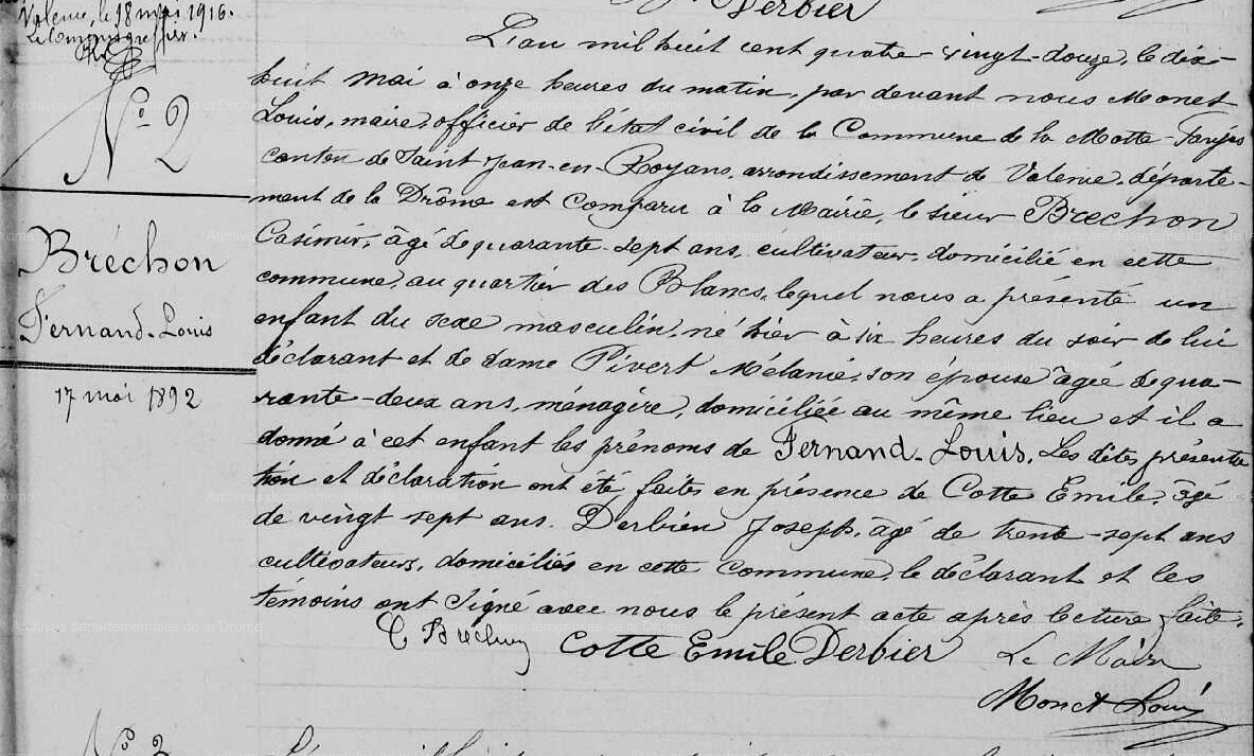 Valence, le 18 mai 1916.
Le Commis greffier.
Derbier
N° 2
Bréchon
Fernand-Louis
17 mai 1892
L'an mil huit cent quatre-vingt-douze, le dix-
huit mai à onze heures du matin, par devant nous Monet
Louis, maire, officier de l'état civil de la Commune de la Motte-Fanjas
canton de Saint Jean-en-Royans, arrondissement de Valence, départe-
ment de la Drôme est comparu à la Mairie, le sieur Bréchon
Casimir, âgé de quarante-sept ans, cultivateur, domicilié en cette
commune, au quartier des Blancs, lequel nous a présenté un
enfant du sexe masculin, né hier à six heures du soir de lui
déclarant et de dame Pivert Mélanie, son épouse âgée de qua-
rante-deux ans, ménagère, domiciliée au même lieu et il a
donné à cet enfant les prénoms de Fernand-Louis. Les dites présenta
tion et déclaration ont été faites en présence de Cotte Emile, âgé
de vingt sept ans. Derbier Joseph, âgé de trente-sept ans
cultivateurs, domiciliés en cette commune, le déclarant et les
témoins ont signé avec nous le présent acte après lecture faite.
C Brechon Cotte Emile Derbier Le Maire
Monet Louis
N° 3
Archives départementales de la Drôme